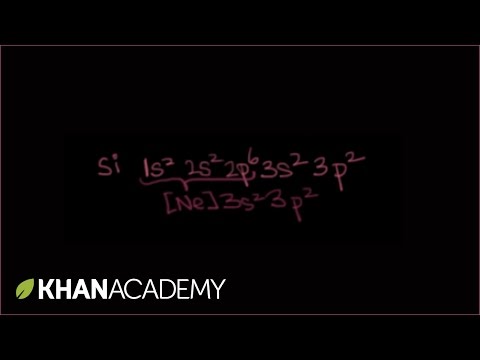 Si 1s² 2s² 2p⁶ 3s² 3p²
[Ne] 3s² 3p²
KHANACADEMY